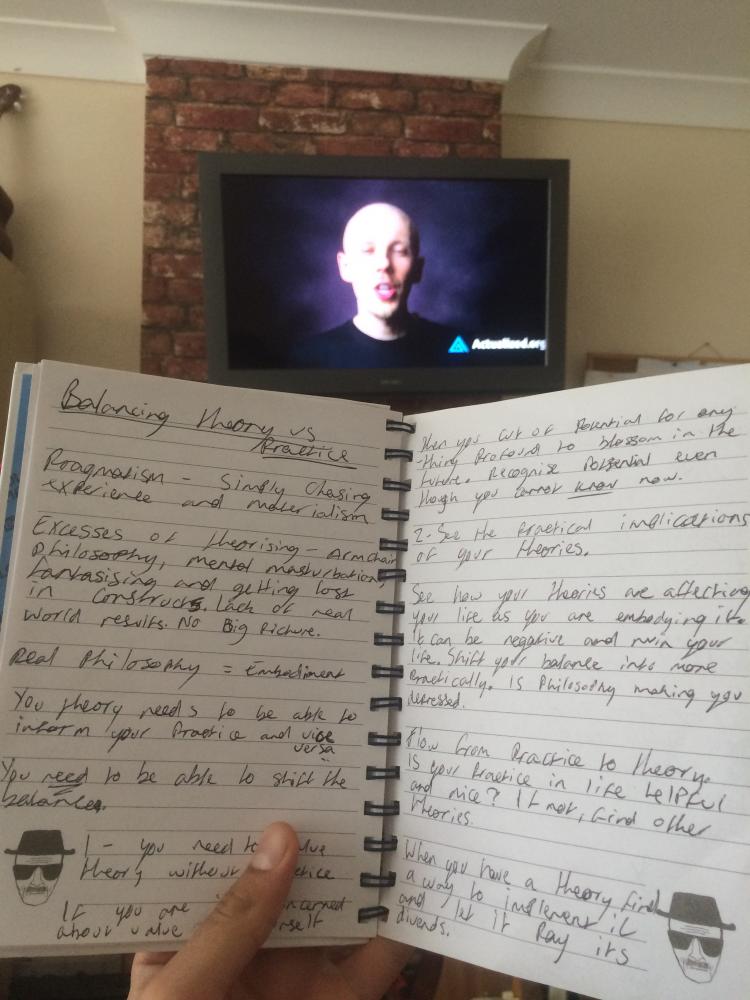 Actualized.org
Balancing theory vs
Practice
Pragmatism - Simply Chasing
experience and materialism
Excesses of theorising - Armchair
Philosophy, mental masturbation,
Fantasising and getting lost
in constructs. Lack of real
world results. No Big Picture.
Real Philosophy = Embodiment
You theory needs to be able to
inform your Practice and vice
versa
You need to be able to shift the
balance.
1 - you need to value
theory without
If you are
about value
then you cut of Potential for any
thing Profound to blossom in the
future. Recognise Potential even
though you cannot know now.
2 - See the Practical implications
of your theories.
See how your theories are affecting
your life as you are embodying it.
It can be negative and ruin your
life. Shift your balance into more
Practically. Is Philosophy making you
depressed.
Flow from Practice to theory.
Is your Practice in life helpful
and nice? If not, find other
theories.
When you have a theory find
a way to implement it
and let it Pay its
divends.